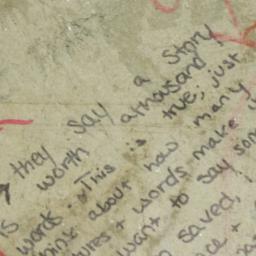 they say a story
is worth a thousand
words. This is true; just
think about how many
pictures + words make u
want to say som
saved,